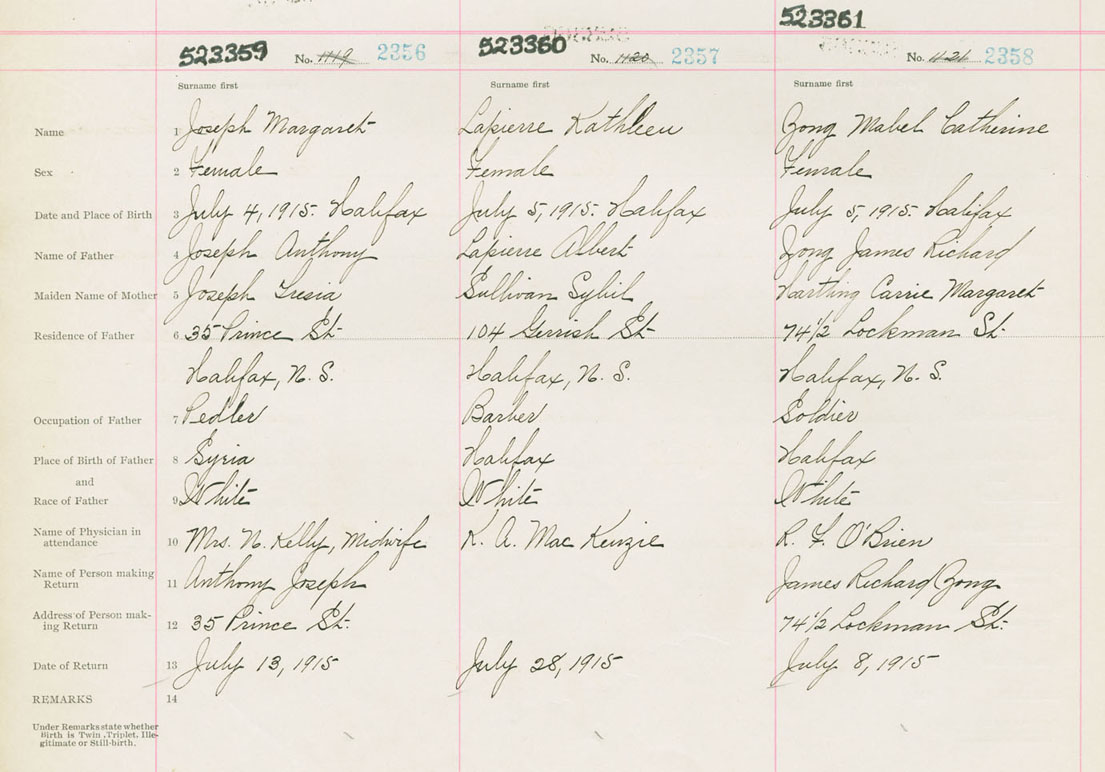 523361
523359 No. 1119 2356 523360 No. 1120 2357 No. 1121 2358
Surname first Surname first Surname first
Name 1 Joseph Margaret Lapierre Kathleen Zong Mabel Catherine
Sex 2 Female Female Female
Date and Place of Birth 3 July 4, 1915. Halifax July 5, 1915. Halifax July 5, 1915. Halifax
Name of Father 4 Joseph Anthony Lapierre Albert Zong James Richard
Maiden Name of Mother 5 Joseph Tresia Sullivan Sybil Hartling Carrie Margaret
Residence of Father 6 35 Prince St. 104 Gerrish St. 74 1/2 Lockman St.
Halifax, N. S. Halifax, N. S. Halifax, N. S.
Occupation of Father 7 Pedler Barber Soldier
Place of Birth of Father 8 Syria Halifax Halifax
and
Race of Father 9 White White White
Name of Physician in
attendance 10 Mrs. N. Kelly, Midwife K. A. MacKenzie R. F. O'Brien
Name of Person making
Return 11 Anthony Joseph James Richard Zong
Address of Person mak-
ing Return 12 35 Prince St. 74 1/2 Lockman St.
Date of Return 13 July 13, 1915 July 28, 1915 July 8, 1915
REMARKS 14
Under Remarks state whether
Birth is Twin, Triplet, Ille-
gitimate or Still-birth.